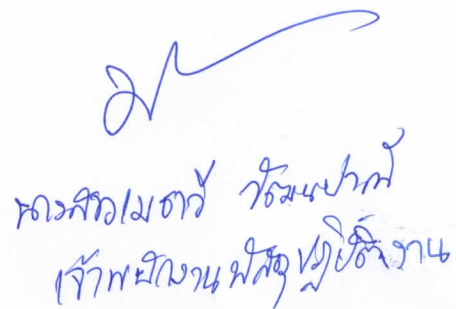 นางสาวเมธาวี วัฒนปาณี
เจ้าพนักงานพัสดุปฏิบัติงาน